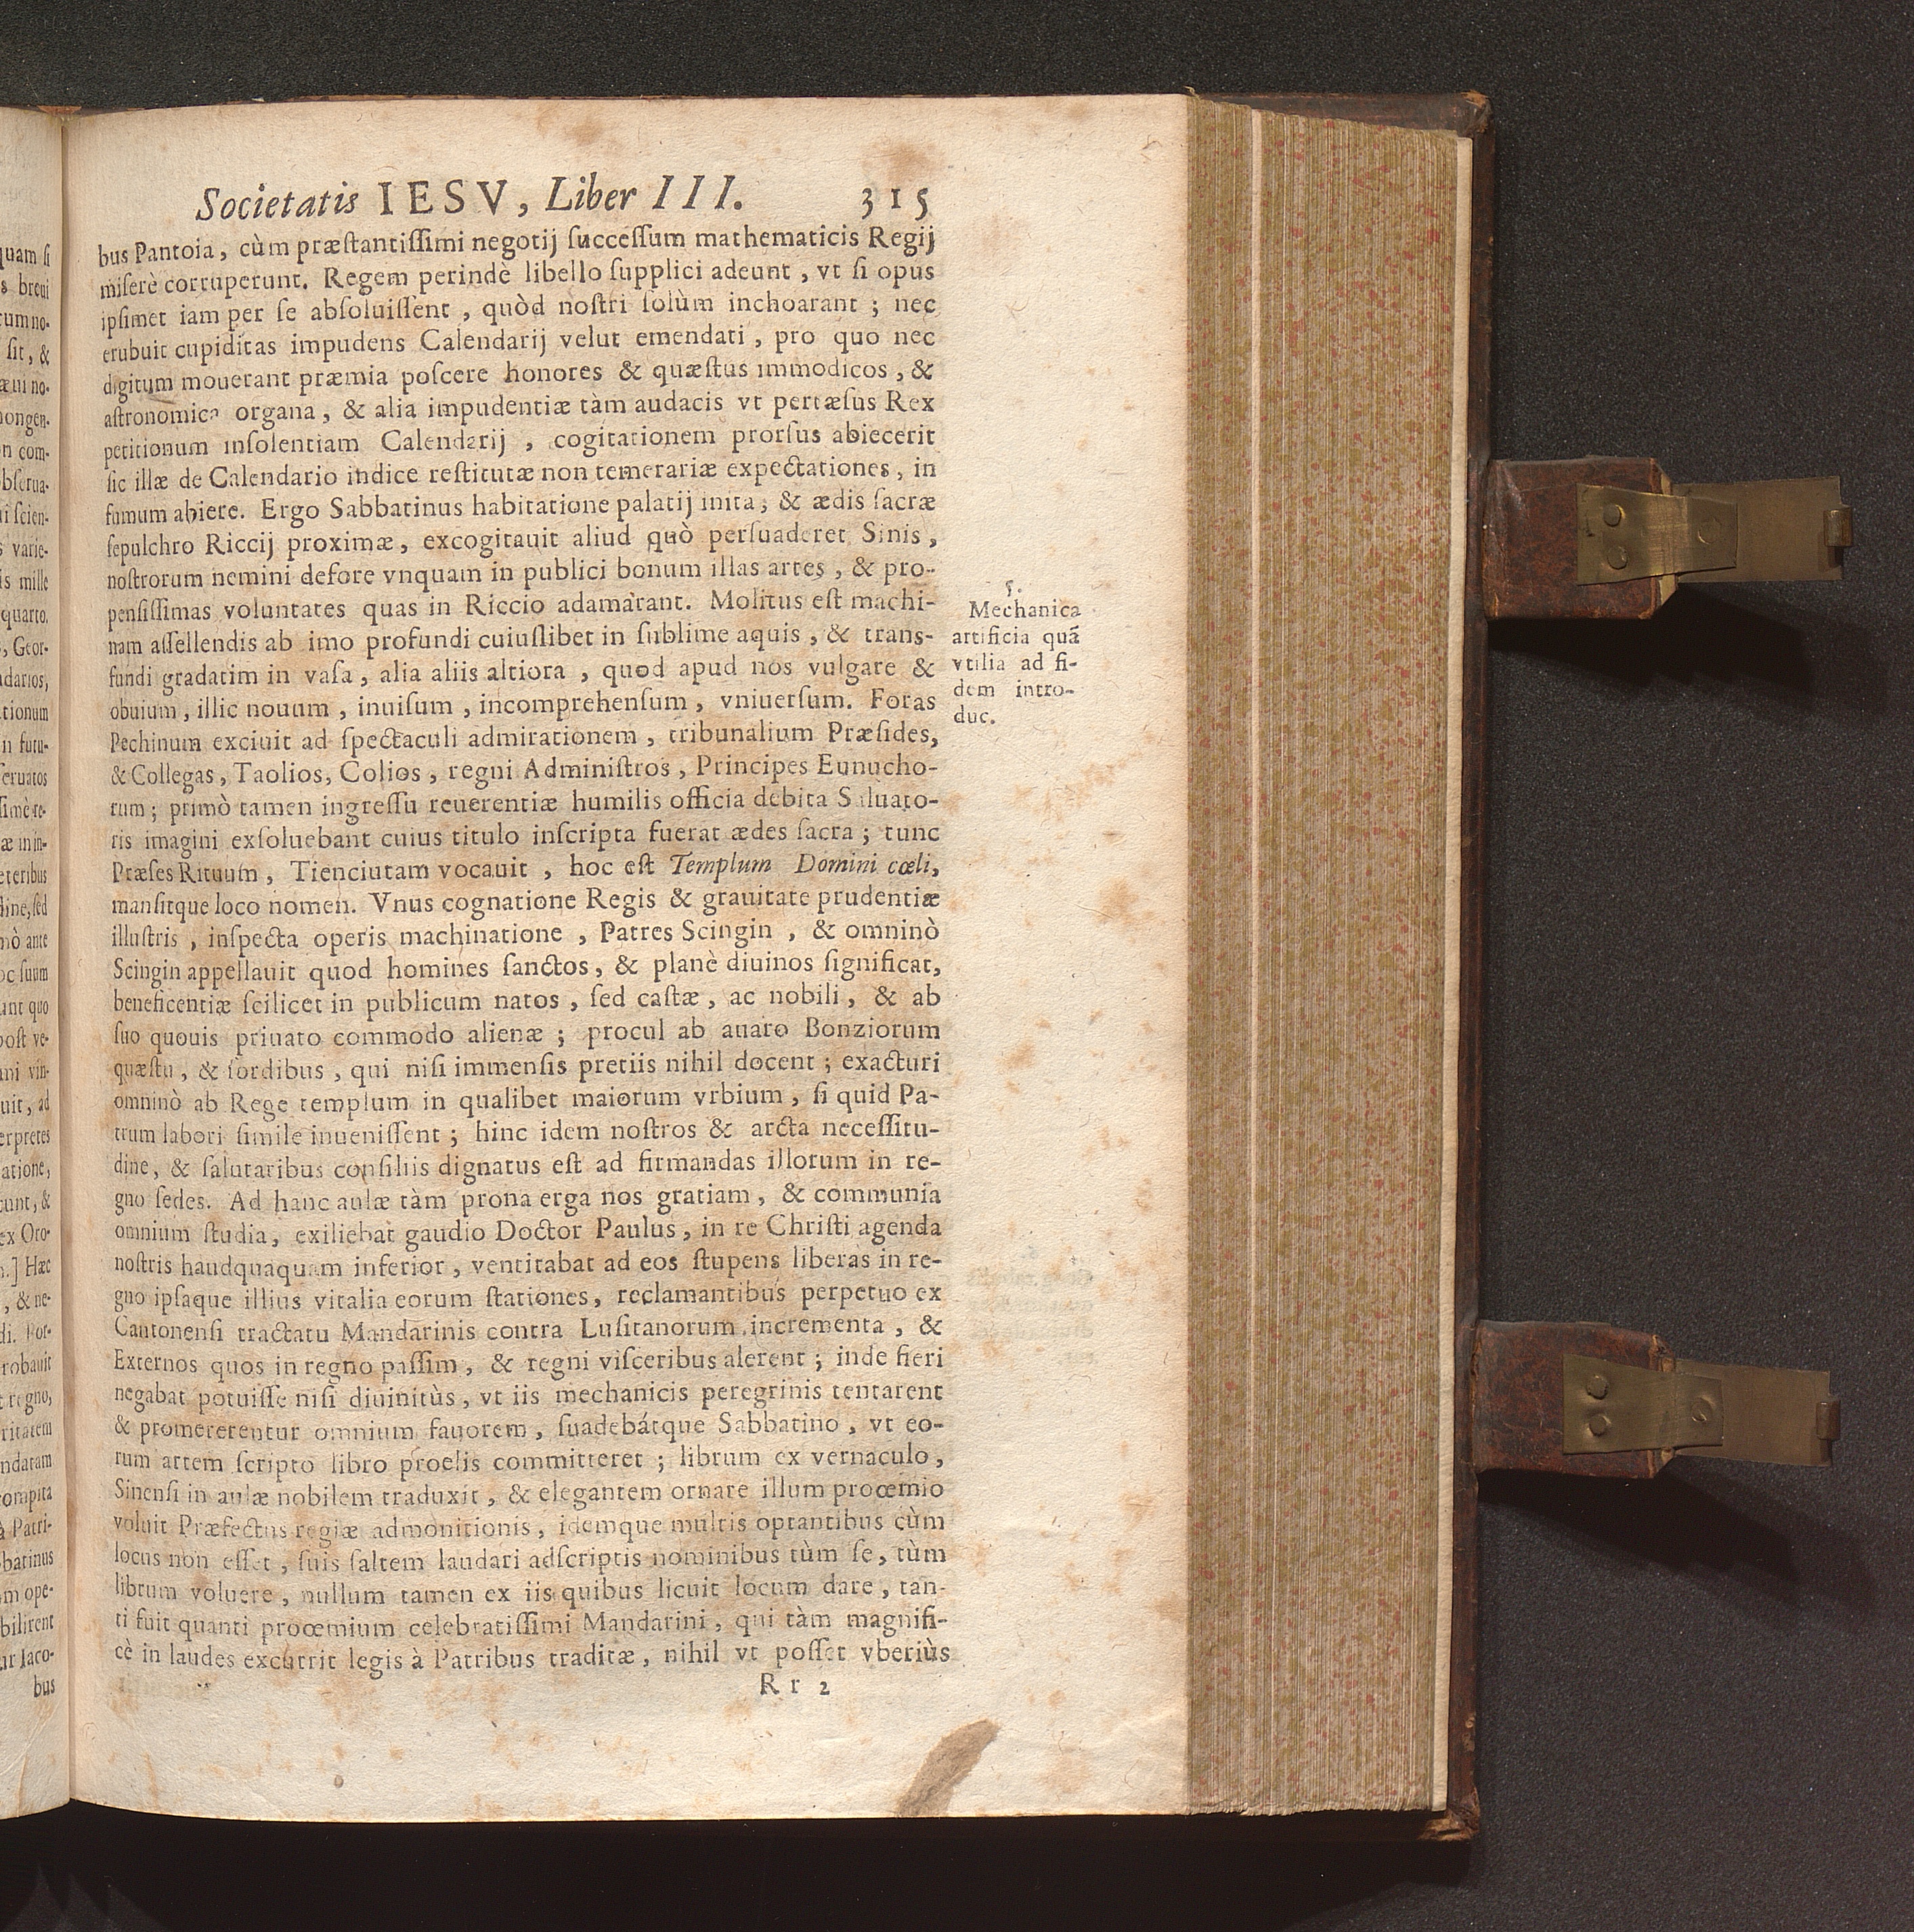 Societatis IESV, Liber III. 315
bus Pantoia, cùm præstantissimi negotij successum mathematicis Regij
miserè corruperunt. Regem perindè libello supplici adeunt, vt si opus
ipsimet iam per se absoluissent, quòd nostri solùm inchoarant; nec
erubuit cupiditas impudens Calendarij velut emendati, pro quo nec
digitum mouerant præmia poscere honores & quæstus immodicos, &
astronomica organa, & alia impudentiæ tàm audacis vt pertæsus Rex
petitionum insolentiam Calendarij, cogitationem prorsus abiecerit
sic illæ de Calendario indice restitutæ non temerariæ expectationes, in
fumum abiere. Ergo Sabbatinus habitatione palatij inita, & ædis sacræ
sepulchro Riccij proximæ, excogitauit aliud quò persuaderet Sinis,
nostrorum nemini defore vnquam in publici bonum illas artes, & pro-
pensissimas voluntates quas in Riccio adamàrant. Molitus est machi-
nam assellendis ab imo profundi cuiuslibet in sublime aquis, & trans-
fundi gradatim in vasa, alia aliis altiora, quod apud nos vulgare &
obuium, illic nouum, inuisum, incomprehensum, vniuersum. Foras
Pechinum exciuit ad spectaculi admirationem, tribunalium Præsides,
& Collegas, Taolios, Colios, regni Administros, Principes Eunucho-
rum; primò tamen ingressu reuerentiæ humilis officia debita Saluato-
ris imagini exsoluebant cuius titulo inscripta fuerat ædes sacra; tunc
Præses Rituum, Tienciutam vocauit, hoc est Templum Domini cœli,
mansitque loco nomen. Vnus cognatione Regis & grauitate prudentiæ
illustris, inspecta operis machinatione, Patres Scingin, & omninò
Scingin appellauit quod homines sanctos, & planè diuinos significat,
beneficentiæ scilicet in publicum natos, sed castæ, ac nobili, & ab
suo quouis priuato commodo alienæ; procul ab auaro Bonziorum
quæstu, & sordibus, qui nisi immensis pretiis nihil docent; exacturi
omninò ab Rege templum in qualibet maiorum vrbium, si quid Pa-
trum labori simile inuenissent; hinc idem nostros & arcta necessitu-
dine, & salutaribus consiliis dignatus est ad firmandas illorum in re-
gno sedes. Ad hanc aulæ tàm prona erga nos gratiam, & communia
omnium studia, exiliebat gaudio Doctor Paulus, in re Christi agenda
nostris haudquaquam inferior, ventitabat ad eos stupens liberas in re-
gno ipsaque illius vitalia eorum stationes, reclamantibus perpetuo ex
Cantonensi tractatu Mandarinis contra Lusitanorum incrementa, &
Externos quos in regno passim, & regni visceribus alerent; inde fieri
negabat potuisse nisi diuinitùs, vt iis mechanicis peregrinis tentarent
& promererentur omnium fauorem, suadebátque Sabbatino, vt eo-
rum artem scripto libro proelis committeret; librum ex vernaculo,
Sinensi in aulæ nobilem traduxit, & elegantem ornare illum procemio
voluit Præfectus regiæ admonitionis, idemque multis optantibus cùm
locus non esset, suis saltem laudari adscriptis nominibus tùm se, tùm
librum voluere, nullum tamen ex iis quibus licuit locum dare, tan-
ti fuit quanti procemium celebratissimi Mandarini, qui tàm magnifi-
cè in laudes excutrit legis à Patribus traditæ, nihil vt posset vberiùs
R r 2
5.
Mechanica
artificia quã
vtilia ad fi-
dem intro-
duc.
quam si
breui
sit, &
quarto,
Geor-
varie-
is mille
eteribus
ante
suum
quo
ad
atione,
ex Oro-
Hæc
& ne-
regno,
compita
à Patri-
ope-
Iaco-
bus